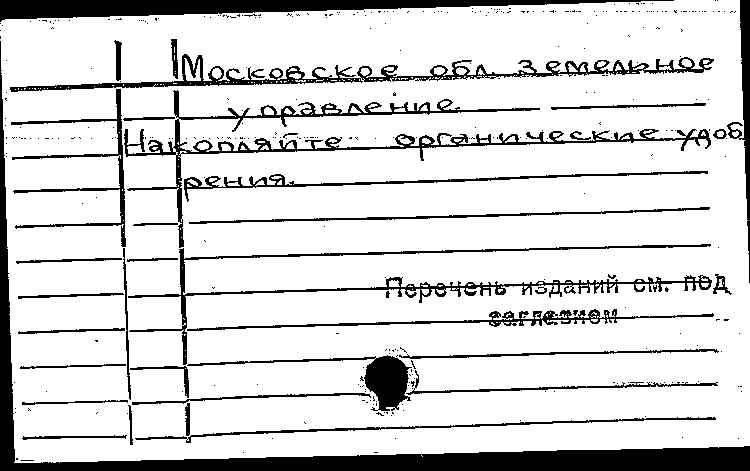 Московское обл. земельное
управление.
Накопляйте органические удоб
рения.
Перечень изданий см. под
заглавием